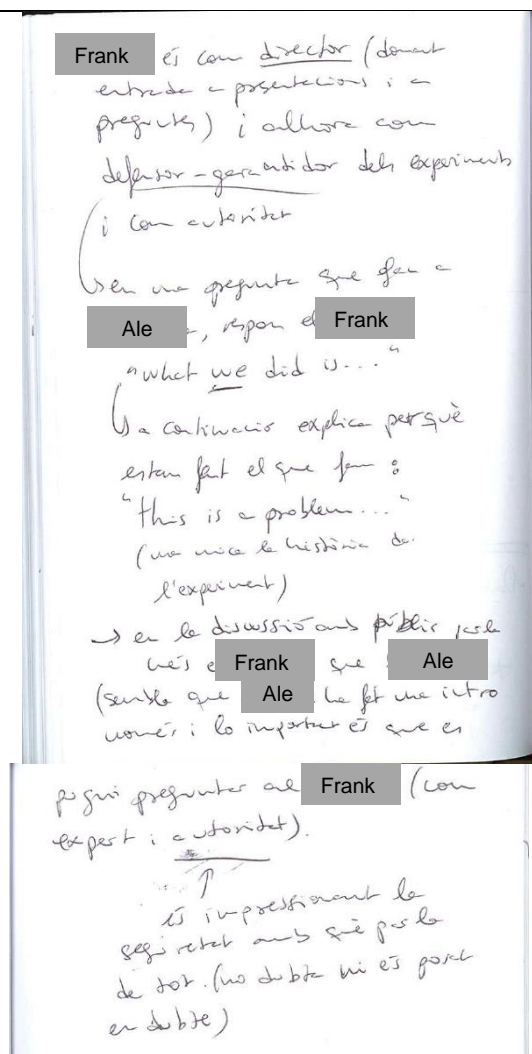 Frank és com director (donant
entrada a presentacions i a
preguntes) i alhora com
defensor-garantidor dels experiments
i com autoritat
↳ en una pregunta que fan a
Ale, respon el Frank
"what we did is..."
↳ a continuació explica perquè
estan fent el que fan:
"this is a problem..."
(una mica la història de
l'experiment)
→ en la discussió amb públic parla
més el Frank que Ale
(sembla que Ale ha fet una intro
només i lo important és que es
pugui preguntar al Frank (com
expert i autoritat).
↑
és impressionant la
seguretat amb què parla
de tot. (no dubta ni és posat
en dubte)